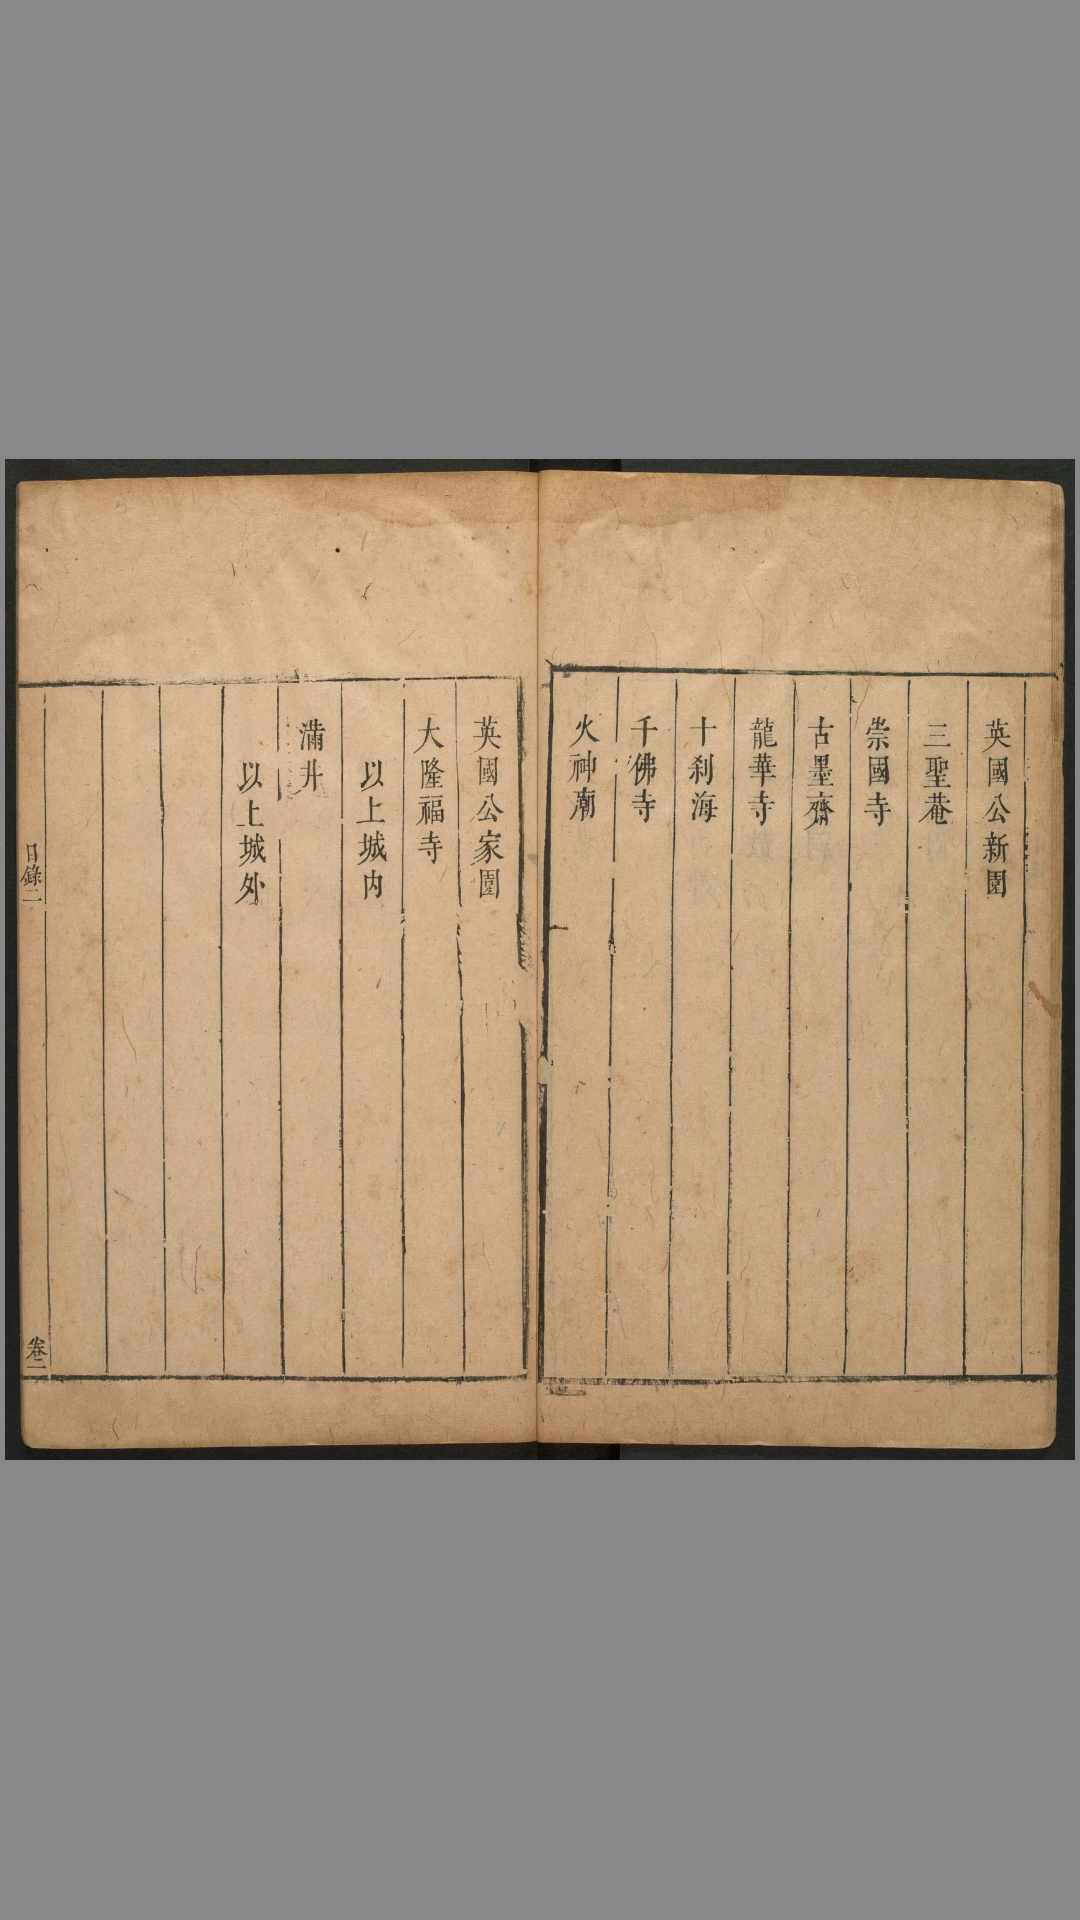 英國公新園
三聖菴
崇國寺
古墨齋
龍華寺
十刹海
千佛寺
火神廟
英國公家園
大隆福寺
以上城内
滿井
以上城外
目錄二